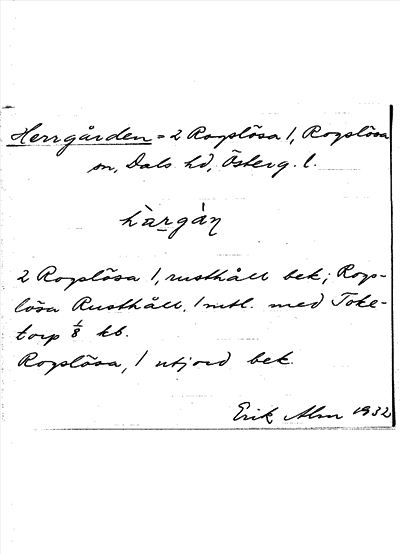 Herrgården = 2 Rogslösa 1, Rogslösa
sn, Dals hd, Österg. l.
hàrgàn
2 Rogslösa 1, rusthåll bek; Rogs-
lösa Rusthåll, 1 mtl. med Toke-
torp 1/8 kb.
Rogslösa, 1 utjord bek.
Erik Alm 1932